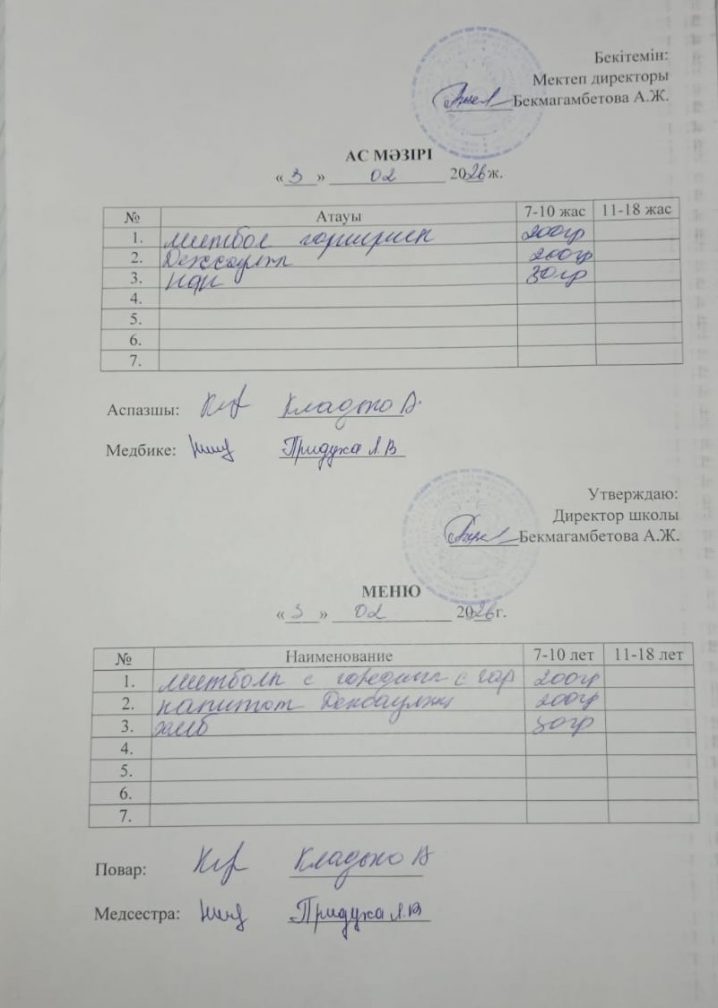 Бекітемін:
Мектеп директоры
Бекмагамбетова А.Ж.
АС МӘЗІРІ
«3» 02 2026 ж.
№ Атауы 7-10 жас 11-18 жас
1. митбол гарнирмен 200гр
2. 200гр
3. нан 30гр
4.
5.
6.
7.
Аспазшы: Кладько В.
Медбике: Придуха Л.В
Утверждаю:
Директор школы
Бекмагамбетова А.Ж.
МЕНЮ
«3» 02 2026 г.
№ Наименование 7-10 лет 11-18 лет
1. митболы с с гар 200гр
2. напиток 200гр
3. хлеб 30гр
4.
5.
6.
7.
Повар: Кладько В
Медсестра: Придуха Л.В